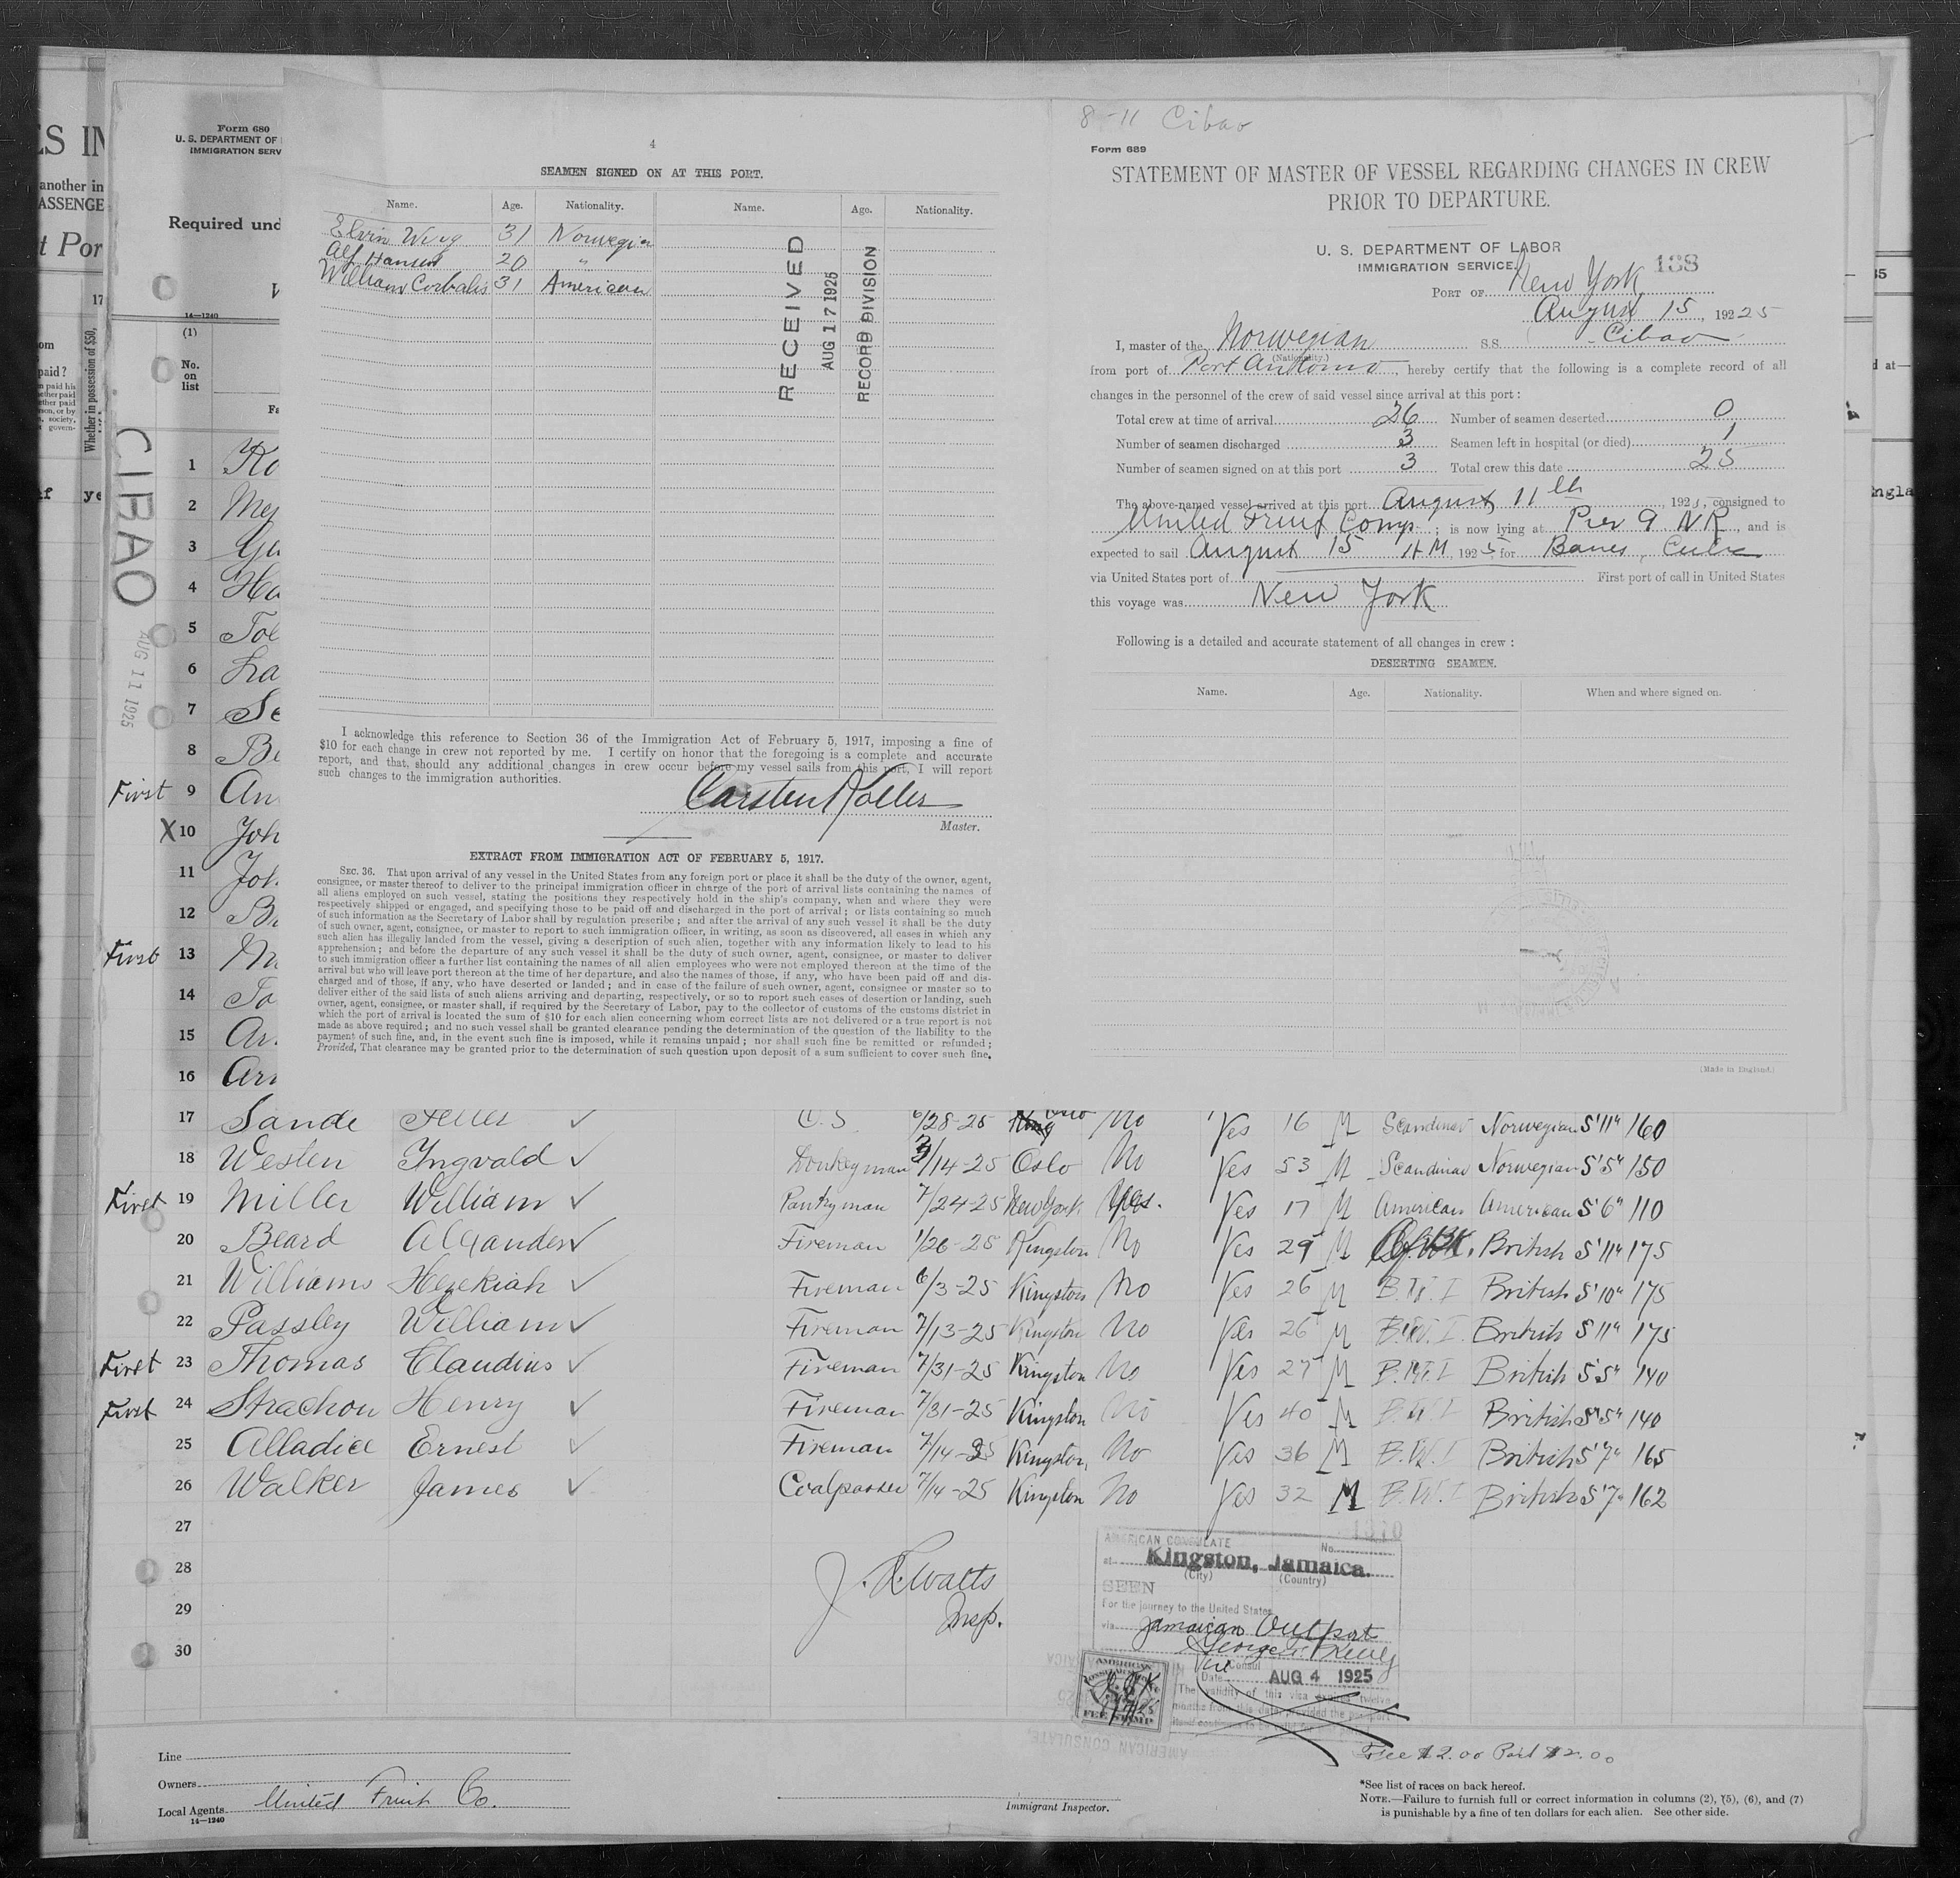 ES IN
another in
ASSENGE
t Por
17
Whether in possession of $50,
om
paid?
n paid his
ether paid
ether paid
rson, or by
n, society,
r govern-
f ye
Form 680
U. S. DEPARTMENT OF
IMMIGRATION SERV
Required und
V
14—1240
(1)
No.
on
list
Fa
CIBAO
AUG 11 1925
1 Ko
2 Mey
3
4 Ha
5 Tol
6 La
7 Se
8 Be
First 9 An
X 10 Joh
11 Joh
12
First 13
14
15
16
4
SEAMEN SIGNED ON AT THIS PORT.
Name. Age. Nationality. Name. Age. Nationality.
Elvin Wiig 31 Norwegian
Alf Hansen 20 "
William Corbalis 31 American
RECEIVED
AUG 17 1925
RECORD DIVISION
I acknowledge this reference to Section 36 of the Immigration Act of February 5, 1917, imposing a fine of
$10 for each change in crew not reported by me. I certify on honor that the foregoing is a complete and accurate
report, and that, should any additional changes in crew occur before my vessel sails from this port, I will report
such changes to the immigration authorities.
Carsten
Master.
EXTRACT FROM IMMIGRATION ACT OF FEBRUARY 5, 1917.
SEC. 36. That upon arrival of any vessel in the United States from any foreign port or place it shall be the duty of the owner, agent,
consignee, or master thereof to deliver to the principal immigration officer in charge of the port of arrival lists containing the names of
all aliens employed on such vessel, stating the positions they respectively hold in the ship's company, when and where they were
respectively shipped or engaged, and specifying those to be paid off and discharged in the port of arrival; or lists containing so much
of such information as the Secretary of Labor shall by regulation prescribe; and after the arrival of any such vessel it shall be the duty
of such owner, agent, consignee, or master to report to such immigration officer, in writing, as soon as discovered, all cases in which any
such alien has illegally landed from the vessel, giving a description of such alien, together with any information likely to lead to his
apprehension; and before the departure of any such vessel it shall be the duty of such owner, agent, consignee, or master to deliver
to such immigration officer a further list containing the names of all alien employees who were not employed thereon at the time of the
arrival but who will leave port thereon at the time of her departure, and also the names of those, if any, who have been paid off and dis-
charged and of those, if any, who have deserted or landed; and in case of the failure of such owner, agent, consignee or master so to
deliver either of the said lists of such aliens arriving and departing, respectively, or so to report such cases of desertion or landing, such
owner, agent, consignee, or master shall, if required by the Secretary of Labor, pay to the collector of customs of the customs district in
which the port of arrival is located the sum of $10 for each alien concerning whom correct lists are not delivered or a true report is not
made as above required; and no such vessel shall be granted clearance pending the determination of the question of the liability to the
payment of such fine, and, in the event such fine is imposed, while it remains unpaid; nor shall such fine be remitted or refunded;
Provided, That clearance may be granted prior to the determination of such question upon deposit of a sum sufficient to cover such fine.
8-11 Cibao
Form 689
STATEMENT OF MASTER OF VESSEL REGARDING CHANGES IN CREW
PRIOR TO DEPARTURE.
U. S. DEPARTMENT OF LABOR
IMMIGRATION SERVICE. 188
PORT OF New York
August 15, 19225
I, master of the Norwegian S.S. Cibao
(Nationality.)
from port of Port Antonio, hereby certify that the following is a complete record of all
changes in the personnel of the crew of said vessel since arrival at this port:
Total crew at time of arrival 26 Number of seamen deserted 0
Number of seamen discharged 3 Seamen left in hospital (or died) 1
Number of seamen signed on at this port 3 Total crew this date 25
The above-named vessel arrived at this port August 11th, 192 , consigned to
United Fruit Comp.; is now lying at Pier 9 N.R., and is
expected to sail August 15 4 M, 1925 for Banes, Cuba
via United States port of First port of call in United States
this voyage was New York
Following is a detailed and accurate statement of all changes in crew:
DESERTING SEAMEN.
Name. Age. Nationality. When and where signed on.
(Made in England.)
35
d at—
ngla
17 Sande ✓ O.S 6/28-25 Oslo No Yes 16 M Scandinav Norwegian 5'11" 160
18 Westen Ingvald ✓ Donkeyman 3/14-25 Oslo No Yes 53 M Scandinav Norwegian 5'5" 150
First 19 Miller William ✓ Pantryman 7/24-25 New York Yes. Yes 17 M American American 5'6" 110
20 Beard Alexander ✓ Fireman 1/26-25 Kingston No Yes 29 M British 5'11" 175
21 Williams Hezekiah ✓ Fireman 6/3-25 Kingston No Yes 26 M B.W.I British 5'10" 175
22 Passley William ✓ Fireman 7/13-25 Kingston No Yes 26 M B.W.I. British 5'11" 175
First 23 Thomas Claudius ✓ Fireman 7/31-25 Kingston No Yes 27 M B.W.I British 5'5" 140
First 24 Strachon Henry ✓ Fireman 7/31-25 Kingston No Yes 40 M B.W.I British 5'5" 140
25 Alladice Ernest ✓ Fireman 7/14-25 Kingston, No Yes 36 M B.W.I British 5'7" 165
26 Walker James ✓ Coalpasser 7/14-25 Kingston No Yes 32 M B.W.I British 5'7" 162
27
28
29
30
J. R. Watts
Insp.
AMERICAN CONSULATE No. 1370
at Kingston, Jamaica.
(City) (Country)
SEEN
For the journey to the United States
via Jamaican Outport
Vice Consul
Date AUG 4 1925
The validity of this visa expires twelve
months from this date, provided the passport
itself continues to be valid
AMERICAN
FEE STAMP
AMERICAN CONSULATE
Fee $2.00 Paid $2.00
Line
Owners
Local Agents United Fruit Co.
14—1240
Immigrant Inspector.
*See list of races on back hereof.
NOTE.—Failure to furnish full or correct information in columns (2), (5), (6), and (7)
is punishable by a fine of ten dollars for each alien. See other side.